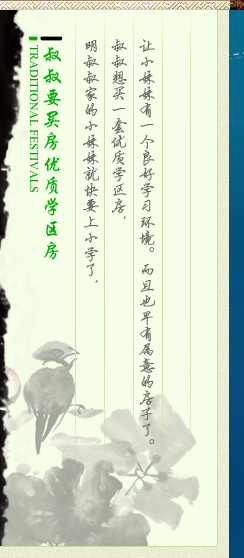 叔叔要买房优质学区房
TRADITIONAL FESTIVALS
明叔叔家的小妹妹就快要上小学了，
叔叔想买一套优质学区房，
让小妹妹有一个良好学习环境。而且也早有属意的房子了。